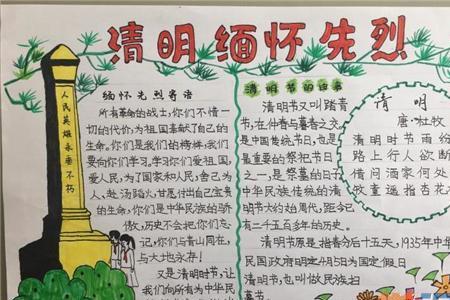 清明缅怀先烈
人民英雄永垂不朽
缅怀先烈寄语
所有革命的战士,你们不惜一
切的代价,为祖国奉献了自己的
生命。你们是我们的榜样,我们
要向你们学习。学习你们爱祖国,
爱人民,为了国家和人民,舍己为
人、赴汤蹈火,甘愿付出自己宝贵
的生命,你们是中华民族的骄
傲,历史不会把你们忘
记,你们与青山同在,
与大地永存!
又是清明时节,让
我们向所有为中华民
清明节的由来
清明节又叫踏青
节,在仲春与暮春之交,
是中国传统节日,也是
最重要的祭祀节日
之一,是祭墓的日子
中华民族传统的清
明节大约始周代,距今已
有二千五百多年的历史。
清明节原是指春分后十五天,1935年中华
民国政府明定4月5日为国定假日
清明节,也叫做民族扫
墓节。
清明
唐·杜牧
清明时节雨纷
路上行人欲断
借问酒家何处
牧童遥指杏花